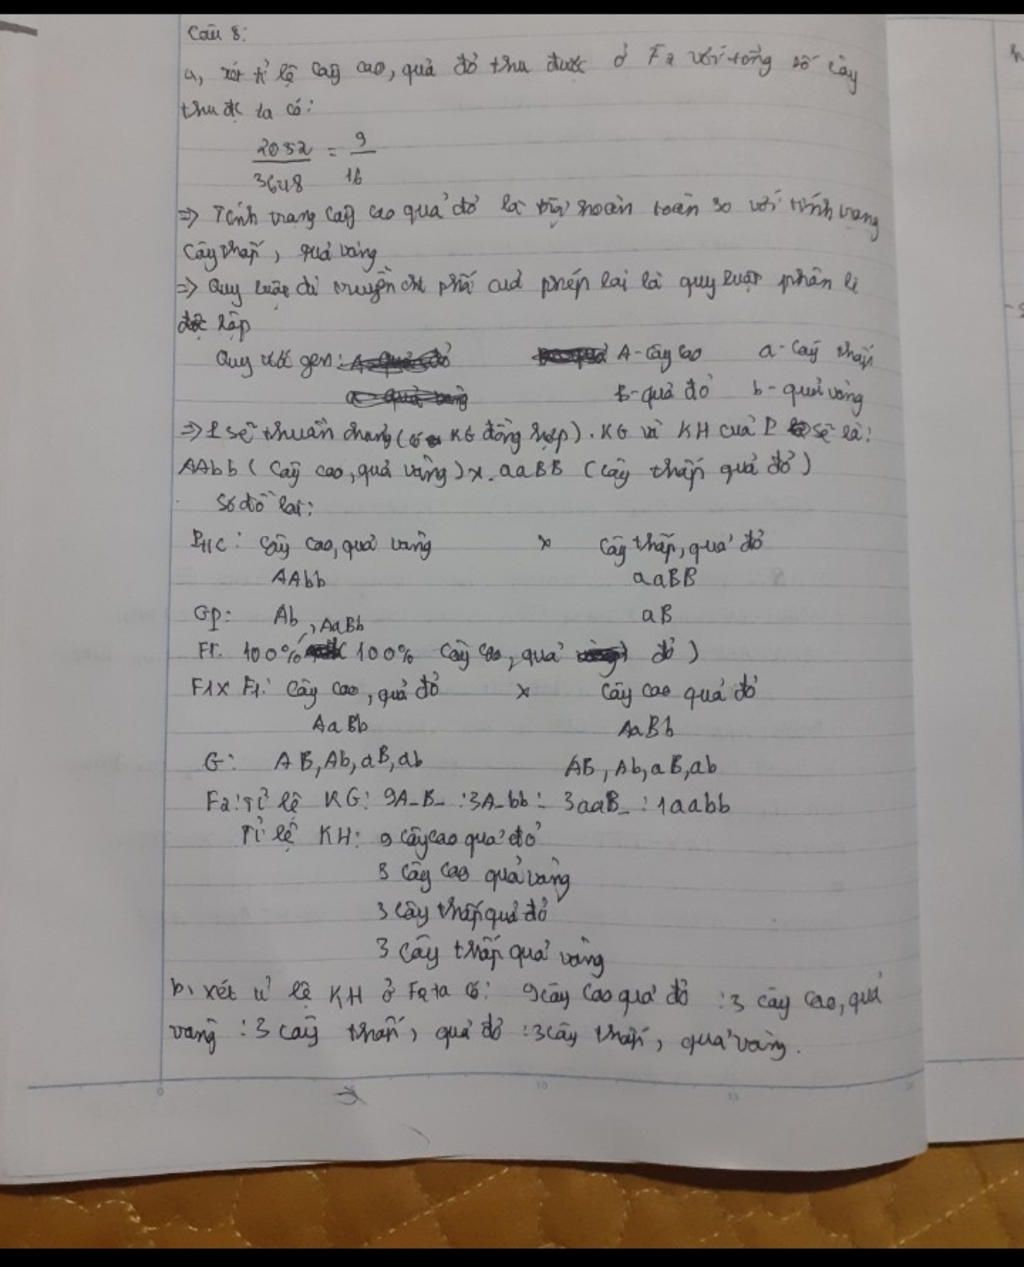 Câu 8:
a, xét tỉ lệ cây cao, quả đỏ thu được ở F2 với tổng số cây
thu đc ta có:
2052/3648 = 9/16
=> Tính trạng cây cao quả đỏ là trội hoàn toàn so với tính trạng
cây thấp, quả vàng
=> Quy luật di truyền chi phối của phép lai là quy luật phân li
độc lập
Quy ước gen: A-cây cao a-cây thấp
B-quả đỏ b-quả vàng
=> P sẽ thuần chủng (có KG đồng hợp). KG và KH của P sẽ là:
AAbb (cây cao, quả vàng) x. aaBB (cây thấp quả đỏ)
Sơ đồ lai:
Pt/c: cây cao, quả vàng x cây thấp, quả đỏ
AAbb aaBB
Gp: Ab aB
F1: 100% AaBb (100% cây cao, quả đỏ)
F1x F1: cây cao, quả đỏ x cây cao quả đỏ
AaBb AaBb
G: AB, Ab, aB, ab AB, Ab, aB, ab
F2: Tỉ lệ KG: 9A-B- : 3A-bb : 3aaB- : 1aabb
Tỉ lệ KH: 9 cây cao quả đỏ
3 cây cao quả vàng
3 cây thấp quả đỏ
3 cây thấp quả vàng
b, xét tỉ lệ KH ở F2 ta có: 9 cây cao quả đỏ : 3 cây cao, quả
vàng : 3 cây thấp, quả đỏ : 3 cây thấp, quả vàng.
=>
0 10 15 20